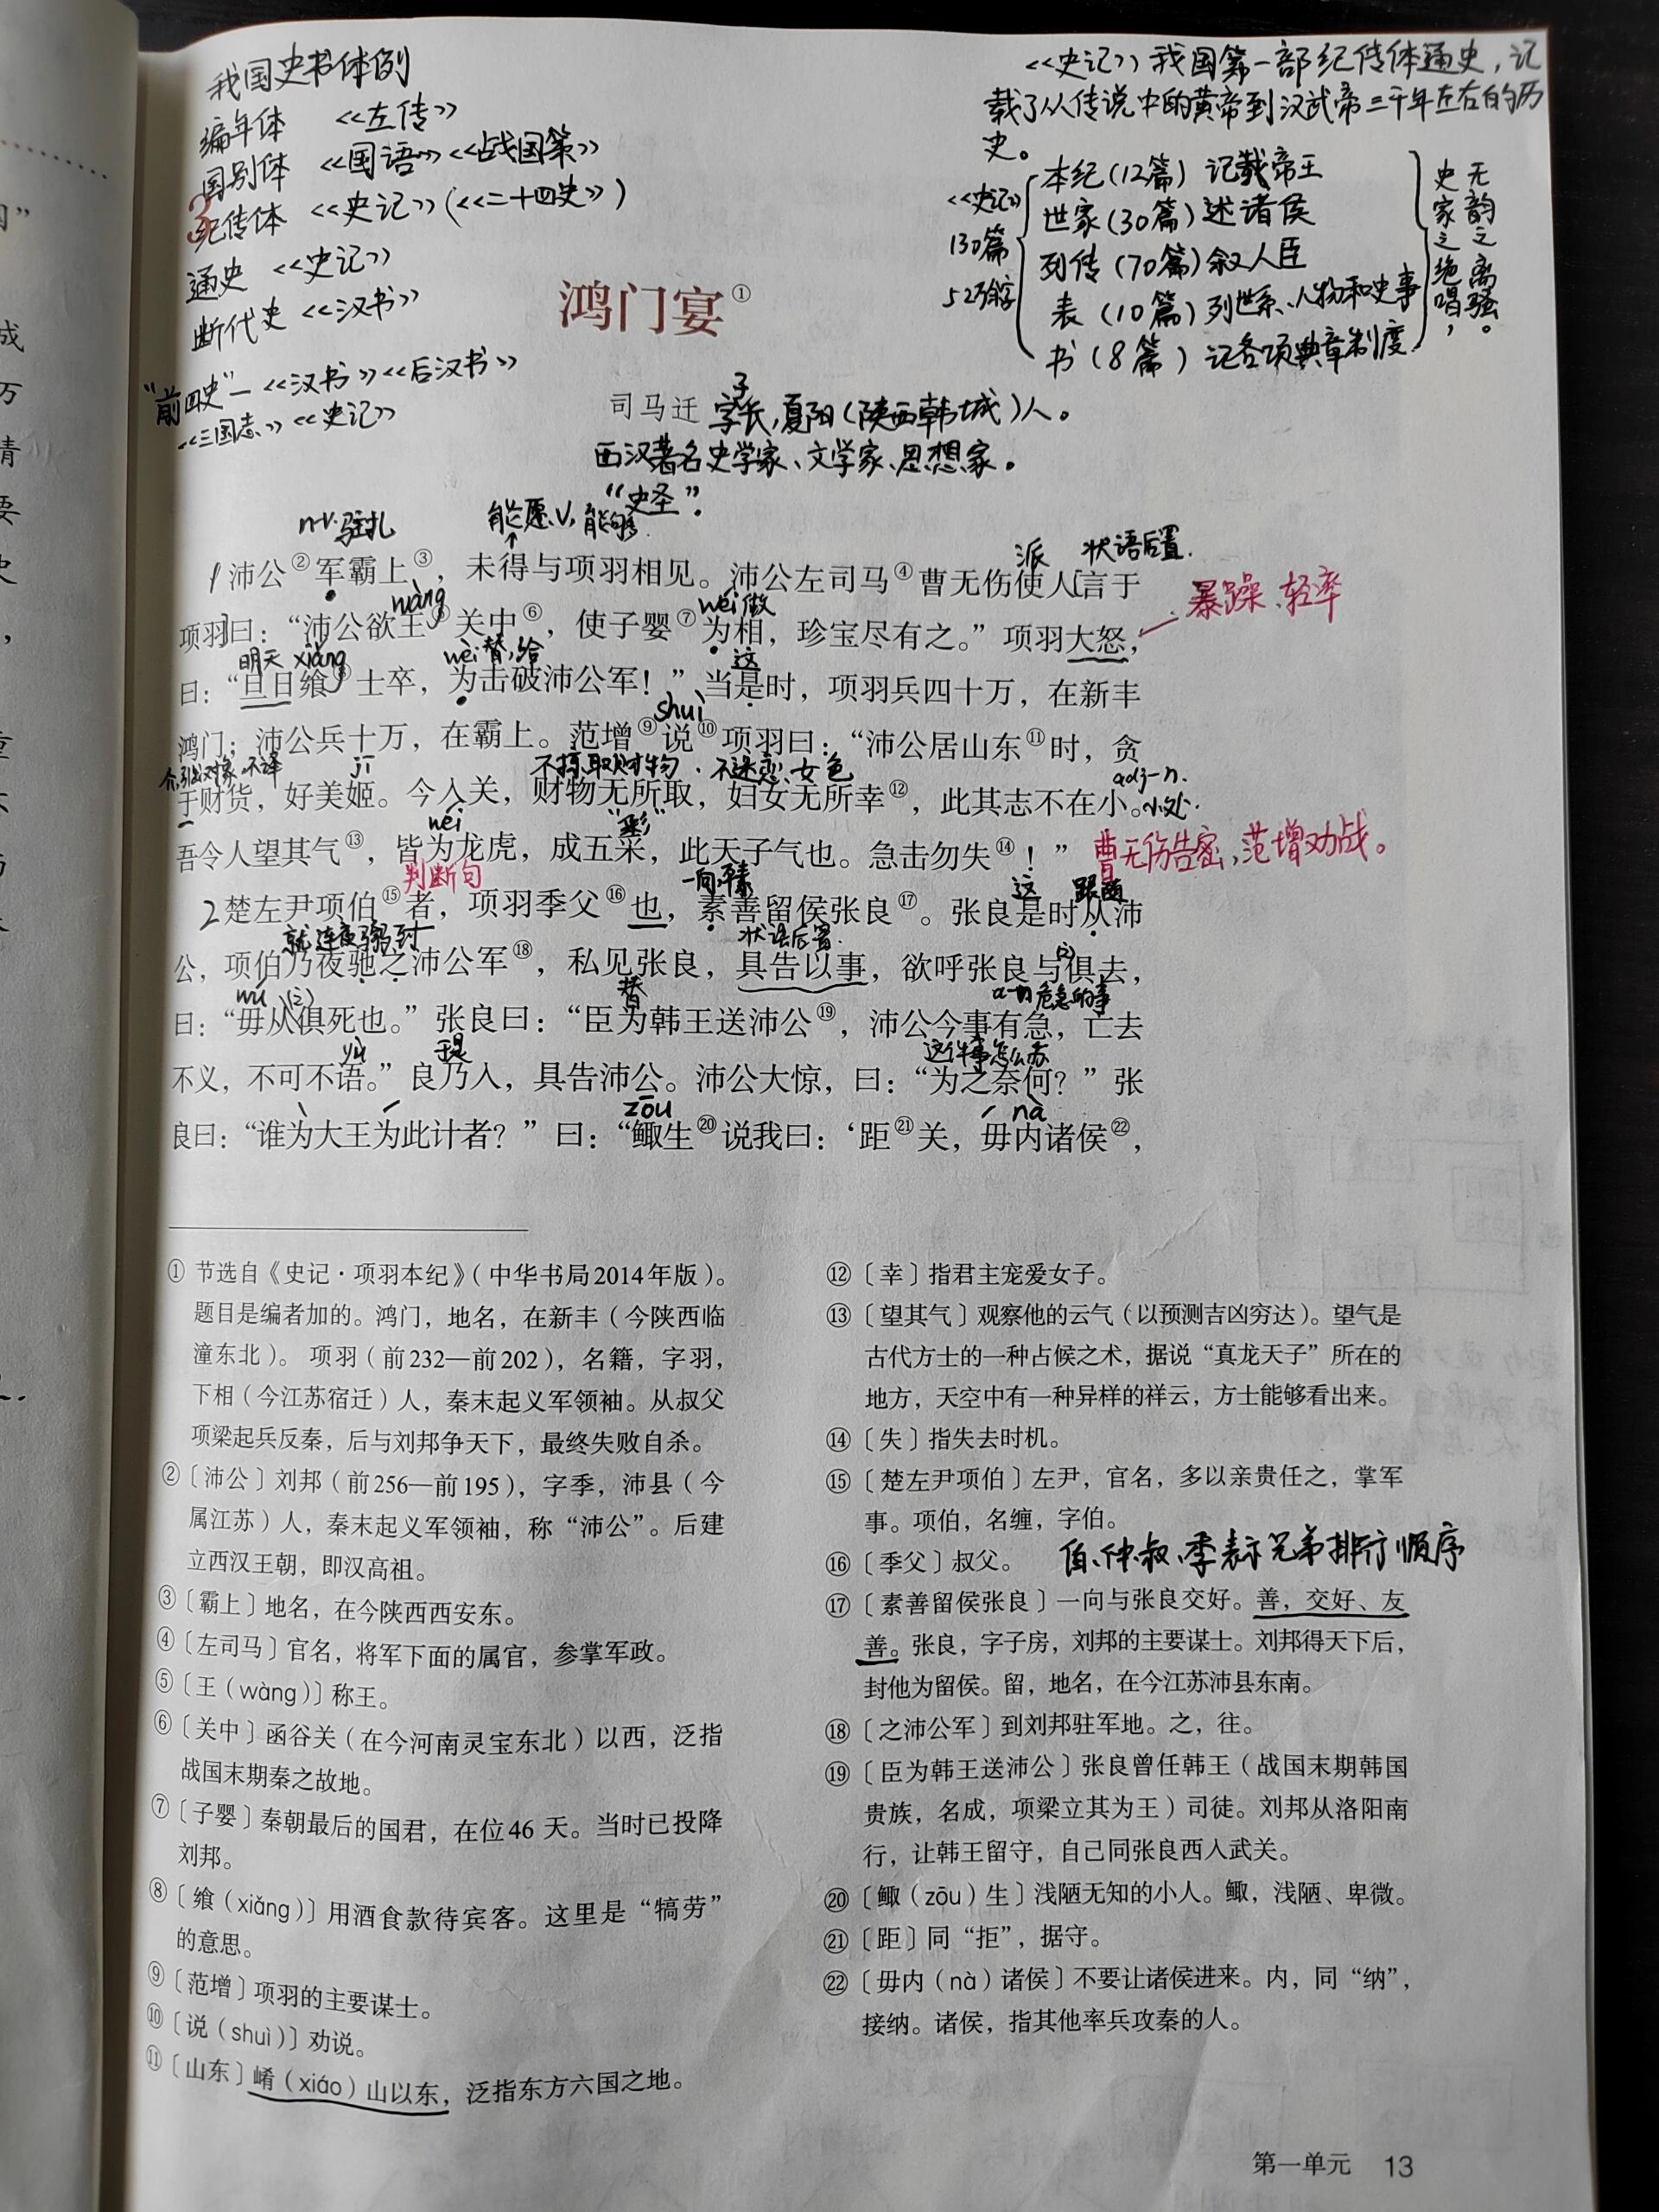 我国史书体例
编年体 《左传》
国别体 《国语》《战国策》
纪传体 《史记》(《二十四史》)
通史 《史记》
断代史 《汉书》
“前四史”—《汉书》《后汉书》
《三国志》《史记》
《史记》我国第一部纪传体通史,记
载了从传说中的黄帝到汉武帝三千年左右的历
史。
《史记》
130篇
52万余字
本纪(12篇) 记载帝王
世家(30篇) 述诸侯
列传(70篇) 叙人臣
表(10篇) 列世系、人物和史事
书(8篇) 记各项典章制度
史家之绝唱,
无韵之离骚。
鸿门宴①
司马迁 字子长,夏阳(陕西韩城)人。
西汉著名史学家、文学家、思想家。
“史圣”.
n-v.驻扎 能愿V,能够 派 状语后置.
1 沛公②军霸上③,未得与项羽相见。沛公左司马④曹无伤使人[言于
wàng wéi做 暴躁、轻率
项羽]曰:“沛公欲王⑤关中⑥,使子婴⑦为相,珍宝尽有之。”项羽大怒,
明天 xiǎng wèi替,给 这
曰:“旦日飨⑧士卒,为击破沛公军!”当是时,项羽兵四十万,在新丰
shuì
鸿门;沛公兵十万,在霸上。范增⑨说⑩项羽曰:“沛公居山东⑪时,贪
介,引出对象,不译 jī 不掠取财物. 不迷恋女色 adj-n.
于财货,好美姬。今入关,财物无所取,妇女无所幸⑫,此其志不在小。小处.
wéi “彩”
吾令人望其气⑬,皆为龙虎,成五采,此天子气也。急击勿失⑭!” 曹无伤告密,范增劝战。
判断句 一向,平素 这 跟随
2 楚左尹项伯⑮者,项羽季父⑯也,素善留侯张良⑰。张良是时从沛
就 连夜 骑马 到 状语后置. (之)
公,项伯乃夜驰之沛公军⑱,私见张良,具告以事,欲呼张良与俱去,
wú (之) 替 a-n危急的事
曰:“毋从俱死也。”张良曰:“臣为韩王送沛公⑲,沛公今事有急,亡去
yù 于是 这件事怎么办
不义,不可不语。”良乃入,具告沛公。沛公大惊,曰:“为之奈何?”张
zōu nà
良曰:“谁为大王为此计者?”曰:“鲰生⑳说我曰:‘距㉑关,毋内诸侯㉒,
① 节选自《史记·项羽本纪》(中华书局2014年版)。
题目是编者加的。鸿门,地名,在新丰(今陕西临
潼东北)。项羽(前232—前202),名籍,字羽,
下相(今江苏宿迁)人,秦末起义军领袖。从叔父
项梁起兵反秦,后与刘邦争天下,最终失败自杀。
②〔沛公〕刘邦(前256—前195),字季,沛县(今
属江苏)人,秦末起义军领袖,称“沛公”。后建
立西汉王朝,即汉高祖。
③〔霸上〕地名,在今陕西西安东。
④〔左司马〕官名,将军下面的属官,参掌军政。
⑤〔王(wàng)〕称王。
⑥〔关中〕函谷关(在今河南灵宝东北)以西,泛指
战国末期秦之故地。
⑦〔子婴〕秦朝最后的国君,在位46 天。当时已投降
刘邦。
⑧〔飨(xiǎng)〕用酒食款待宾客。这里是“犒劳”
的意思。
⑨〔范增〕项羽的主要谋士。
⑩〔说(shuì)〕劝说。
⑪〔山东〕崤(xiáo)山以东,泛指东方六国之地。
⑫〔幸〕指君主宠爱女子。
⑬〔望其气〕观察他的云气(以预测吉凶穷达)。望气是
古代方士的一种占候之术,据说“真龙天子”所在的
地方,天空中有一种异样的祥云,方士能够看出来。
⑭〔失〕指失去时机。
⑮〔楚左尹项伯〕左尹,官名,多以亲贵任之,掌军
事。项伯,名缠,字伯。
⑯〔季父〕叔父。 伯、仲、叔、季表示兄弟排行顺序
⑰〔素善留侯张良〕一向与张良交好。善,交好、友
善。张良,字子房,刘邦的主要谋士。刘邦得天下后,
封他为留侯。留,地名,在今江苏沛县东南。
⑱〔之沛公军〕到刘邦驻军地。之,往。
⑲〔臣为韩王送沛公〕张良曾任韩王(战国末期韩国
贵族,名成,项梁立其为王)司徒。刘邦从洛阳南
行,让韩王留守,自己同张良西入武关。
⑳〔鲰(zōu)生〕浅陋无知的小人。鲰,浅陋、卑微。
㉑〔距〕同“拒”,据守。
㉒〔毋内(nà)诸侯〕不要让诸侯进来。内,同“纳”,
接纳。诸侯,指其他率兵攻秦的人。
第一单元 13